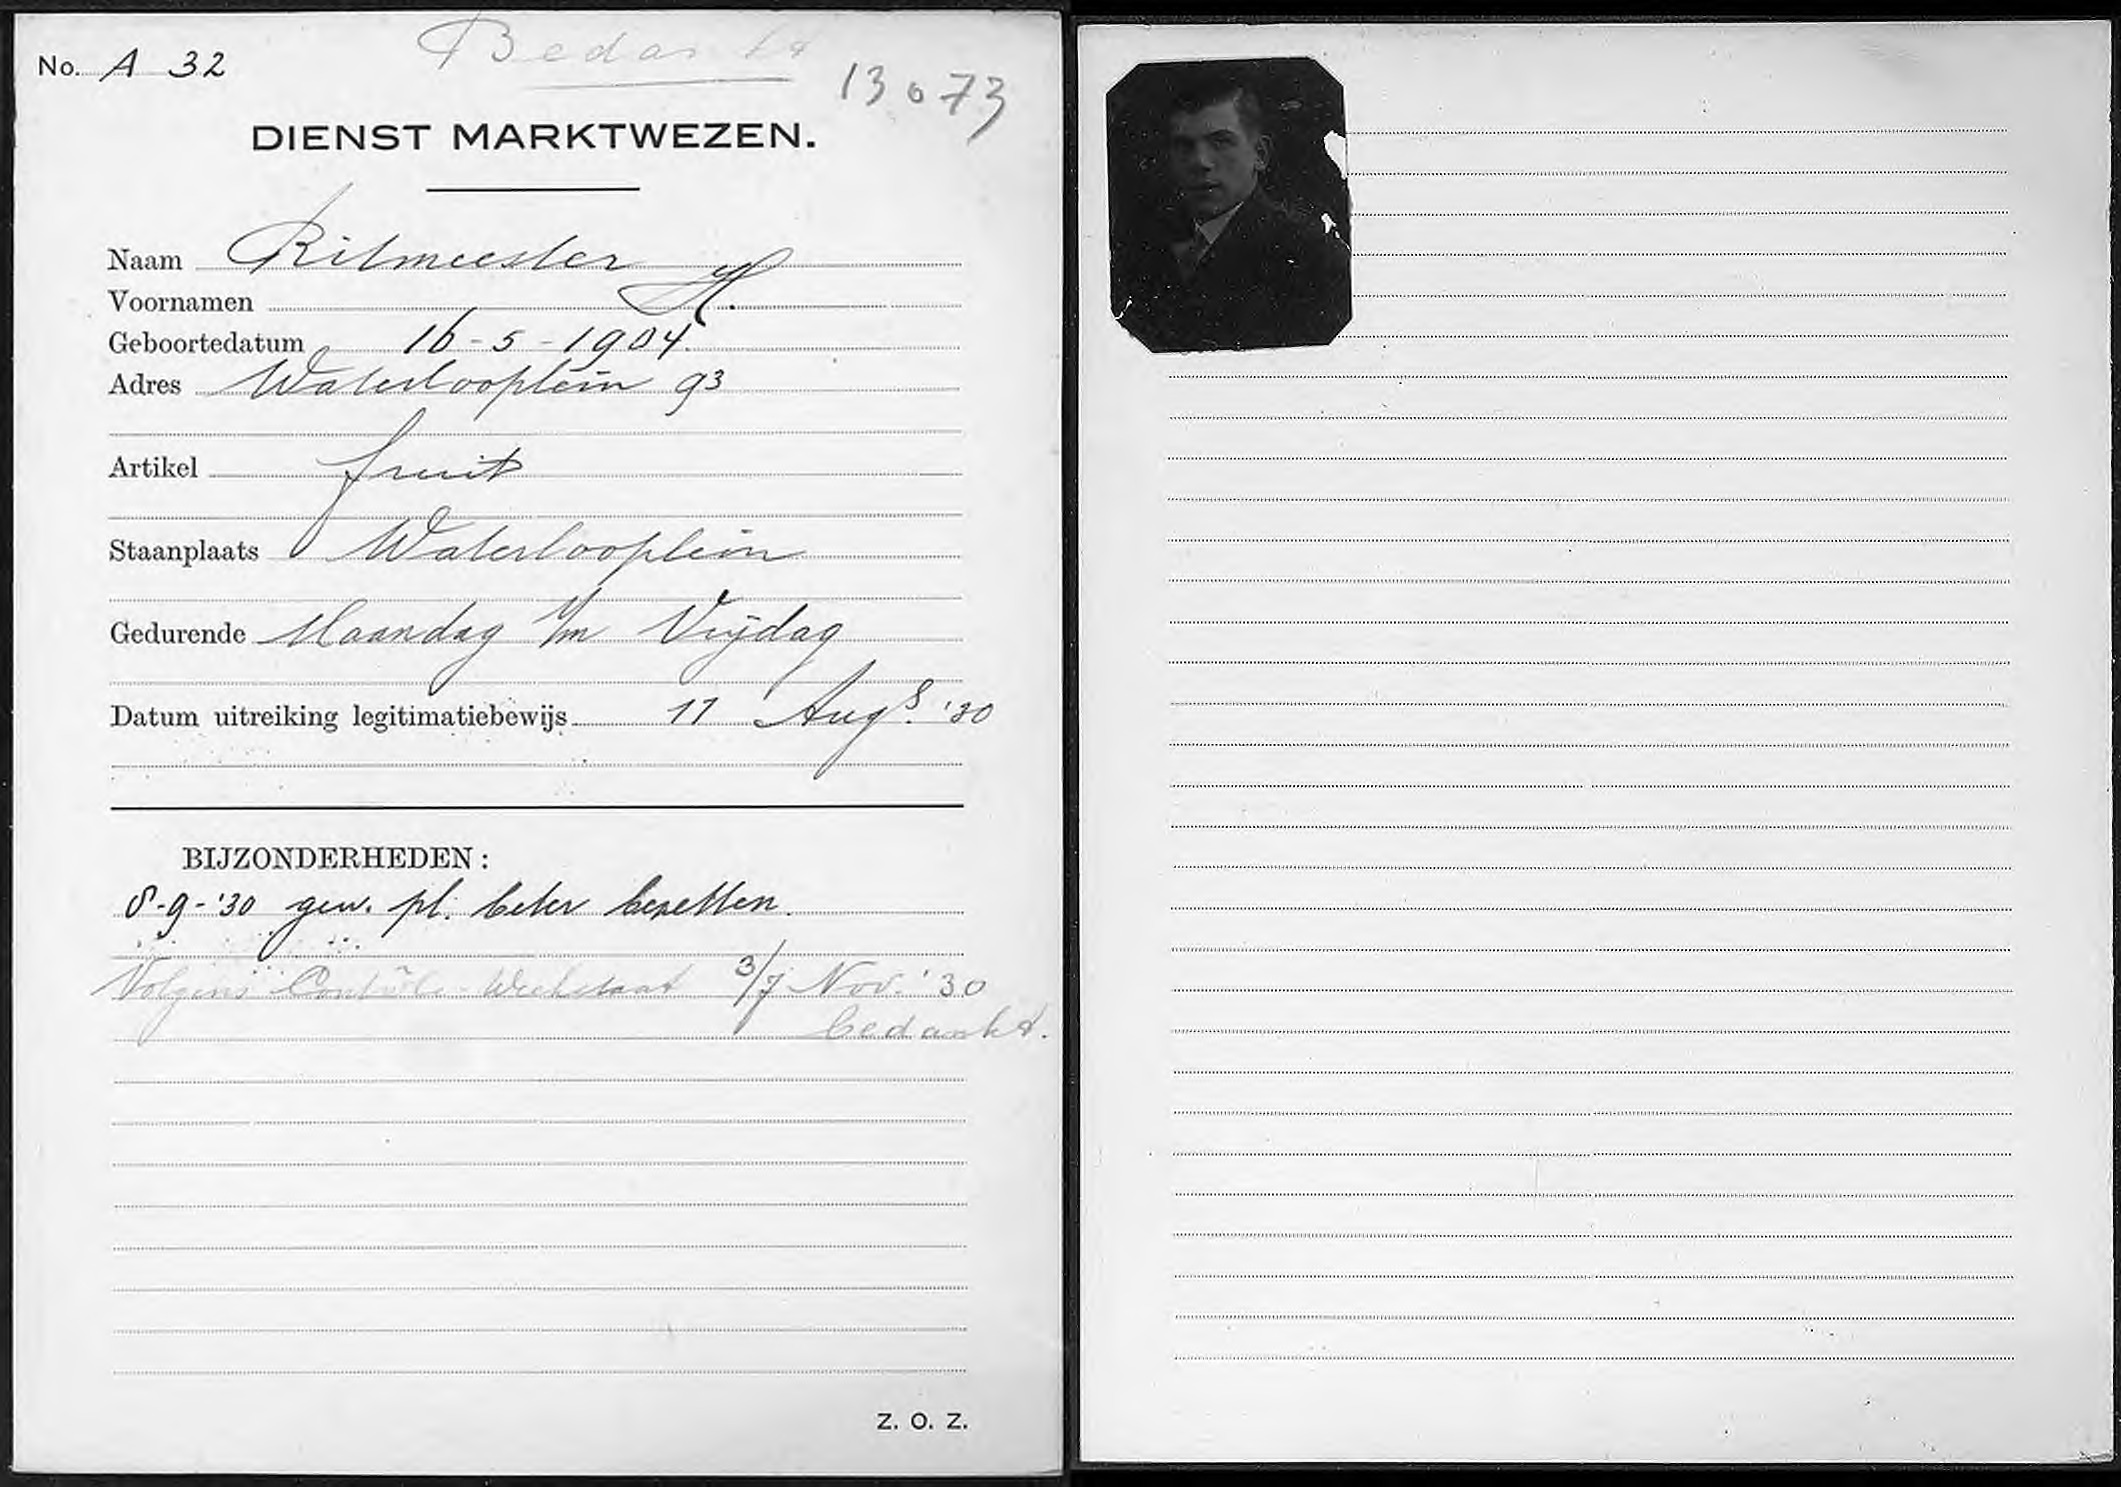 No. A 32
Bedankt
13073
DIENST MARKTWEZEN.
Naam Ritmeester
Voornamen H.
Geboortedatum 16-5-1904.
Adres Waterlooplein 93
Artikel fruit
Staanplaats Waterlooplein
Gedurende Maandag t/m Vrijdag
Datum uitreiking legitimatiebewijs 11 Augs. '30
BIJZONDERHEDEN:
8-9-'30 gew. pl. beter bezetten.
Volgens Contrôle-Weekstaat 3/7 Nov. '30
bedankt.
Z. O. Z.